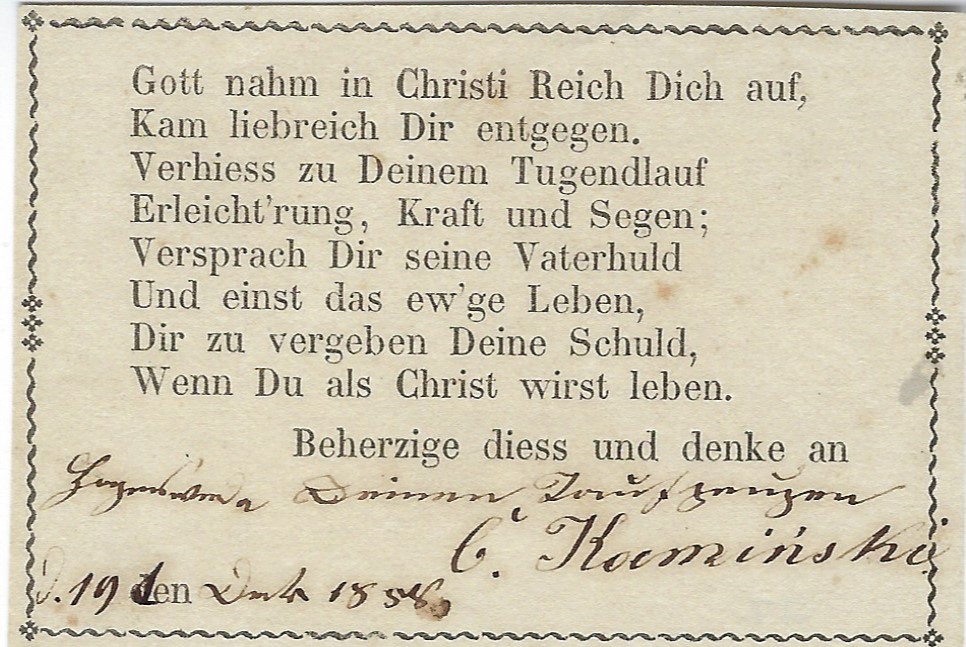 Gott nahm in Christi Reich Dich auf,
Kam liebreich Dir entgegen.
Verhiess zu Deinem Tugendlauf
Erleicht'rung, Kraft und Segen;
Versprach Dir seine Vaterhuld
Und einst das ew'ge Leben,
Dir zu vergeben Deine Schuld,
Wenn Du als Christ wirst leben.
Beherzige diess und denke an
Deinen Taufzeugen
C. Kamiński
d. 19 den 1858